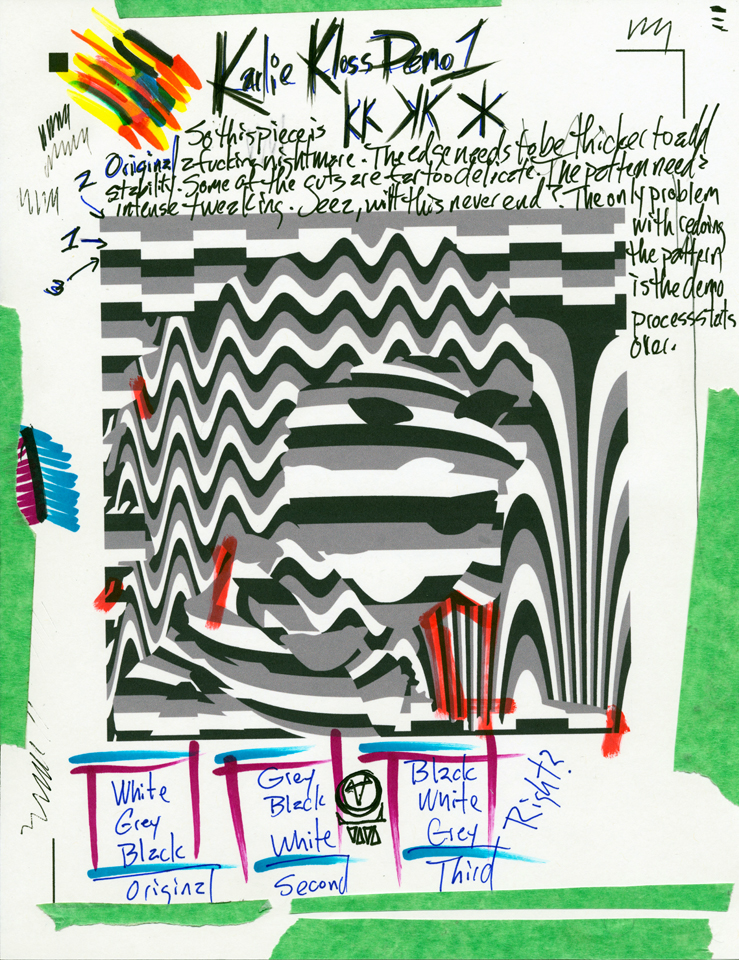 Karlie Kloss Demo 1
KK KK K
So this piece is
Original a fucking nightmare. The edge needs to be thicker to add
stability. Some of the cuts are far too delicate. The pattern needs
intense tweaking. Jeez, will this never end? The only problem
with redoing
the pattern
is the demo
process stats
over.
2
1
3
White
Grey
Black
Original
Grey
Black
White
Second
Black
White
Grey
Third
Right?